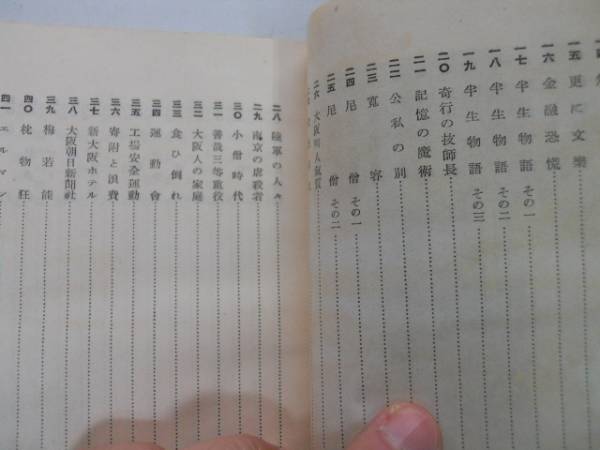 一五 更に文樂
一六 金融恐慌
一七 半生物語 その一
一八 半生物語 その二
一九 半生物語 その三
二〇 奇行の技師長
二一 記憶の魔術
二二 公私の別
二三 寛容
二四 尼僧 その一
二五 尼僧 その二
二六 大阪町人氣質
二八 陸軍の人々
二九 南京の虐殺者
三〇 小僧時代
三一 善哉三等重役
三二 大阪人の家庭
三三 食ひ倒れ
三四 運動會
三五 工場安全運動
三六 寄附と浪費
三七 新大阪ホテル
三八 大阪朝日新聞社
三九 梅若能
四〇 枕物狂
四一 エルマン